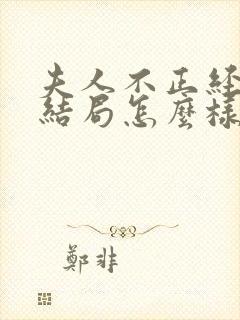 夫人不正经
結局怎麼樣
鄭非